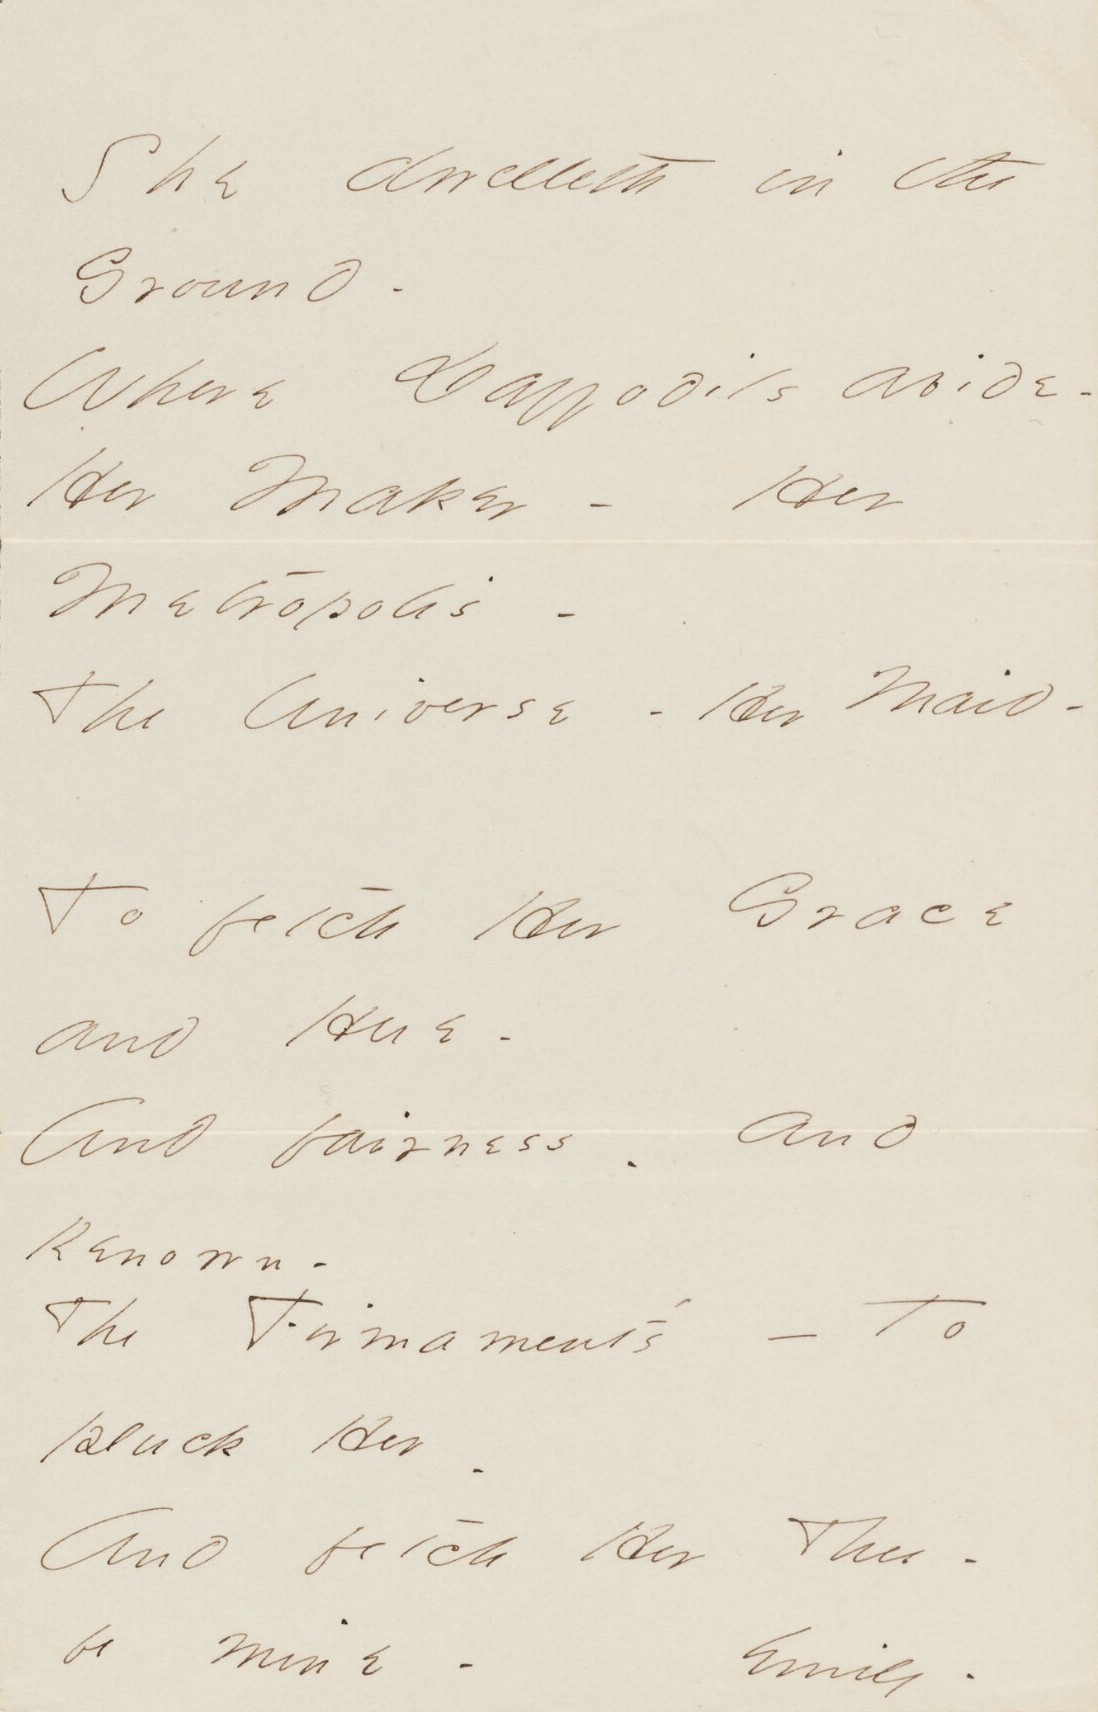 She dwelleth in the
Ground -
Where Daffodils abide -
Her Maker - Her
Metropolis -
The Universe - Her Maid -
To fetch Her Grace
and Hue -
And fairness - and
Renown -
The Firmament's - To
pluck Her -
And fetch Her Thee -
be mine -
Emily -